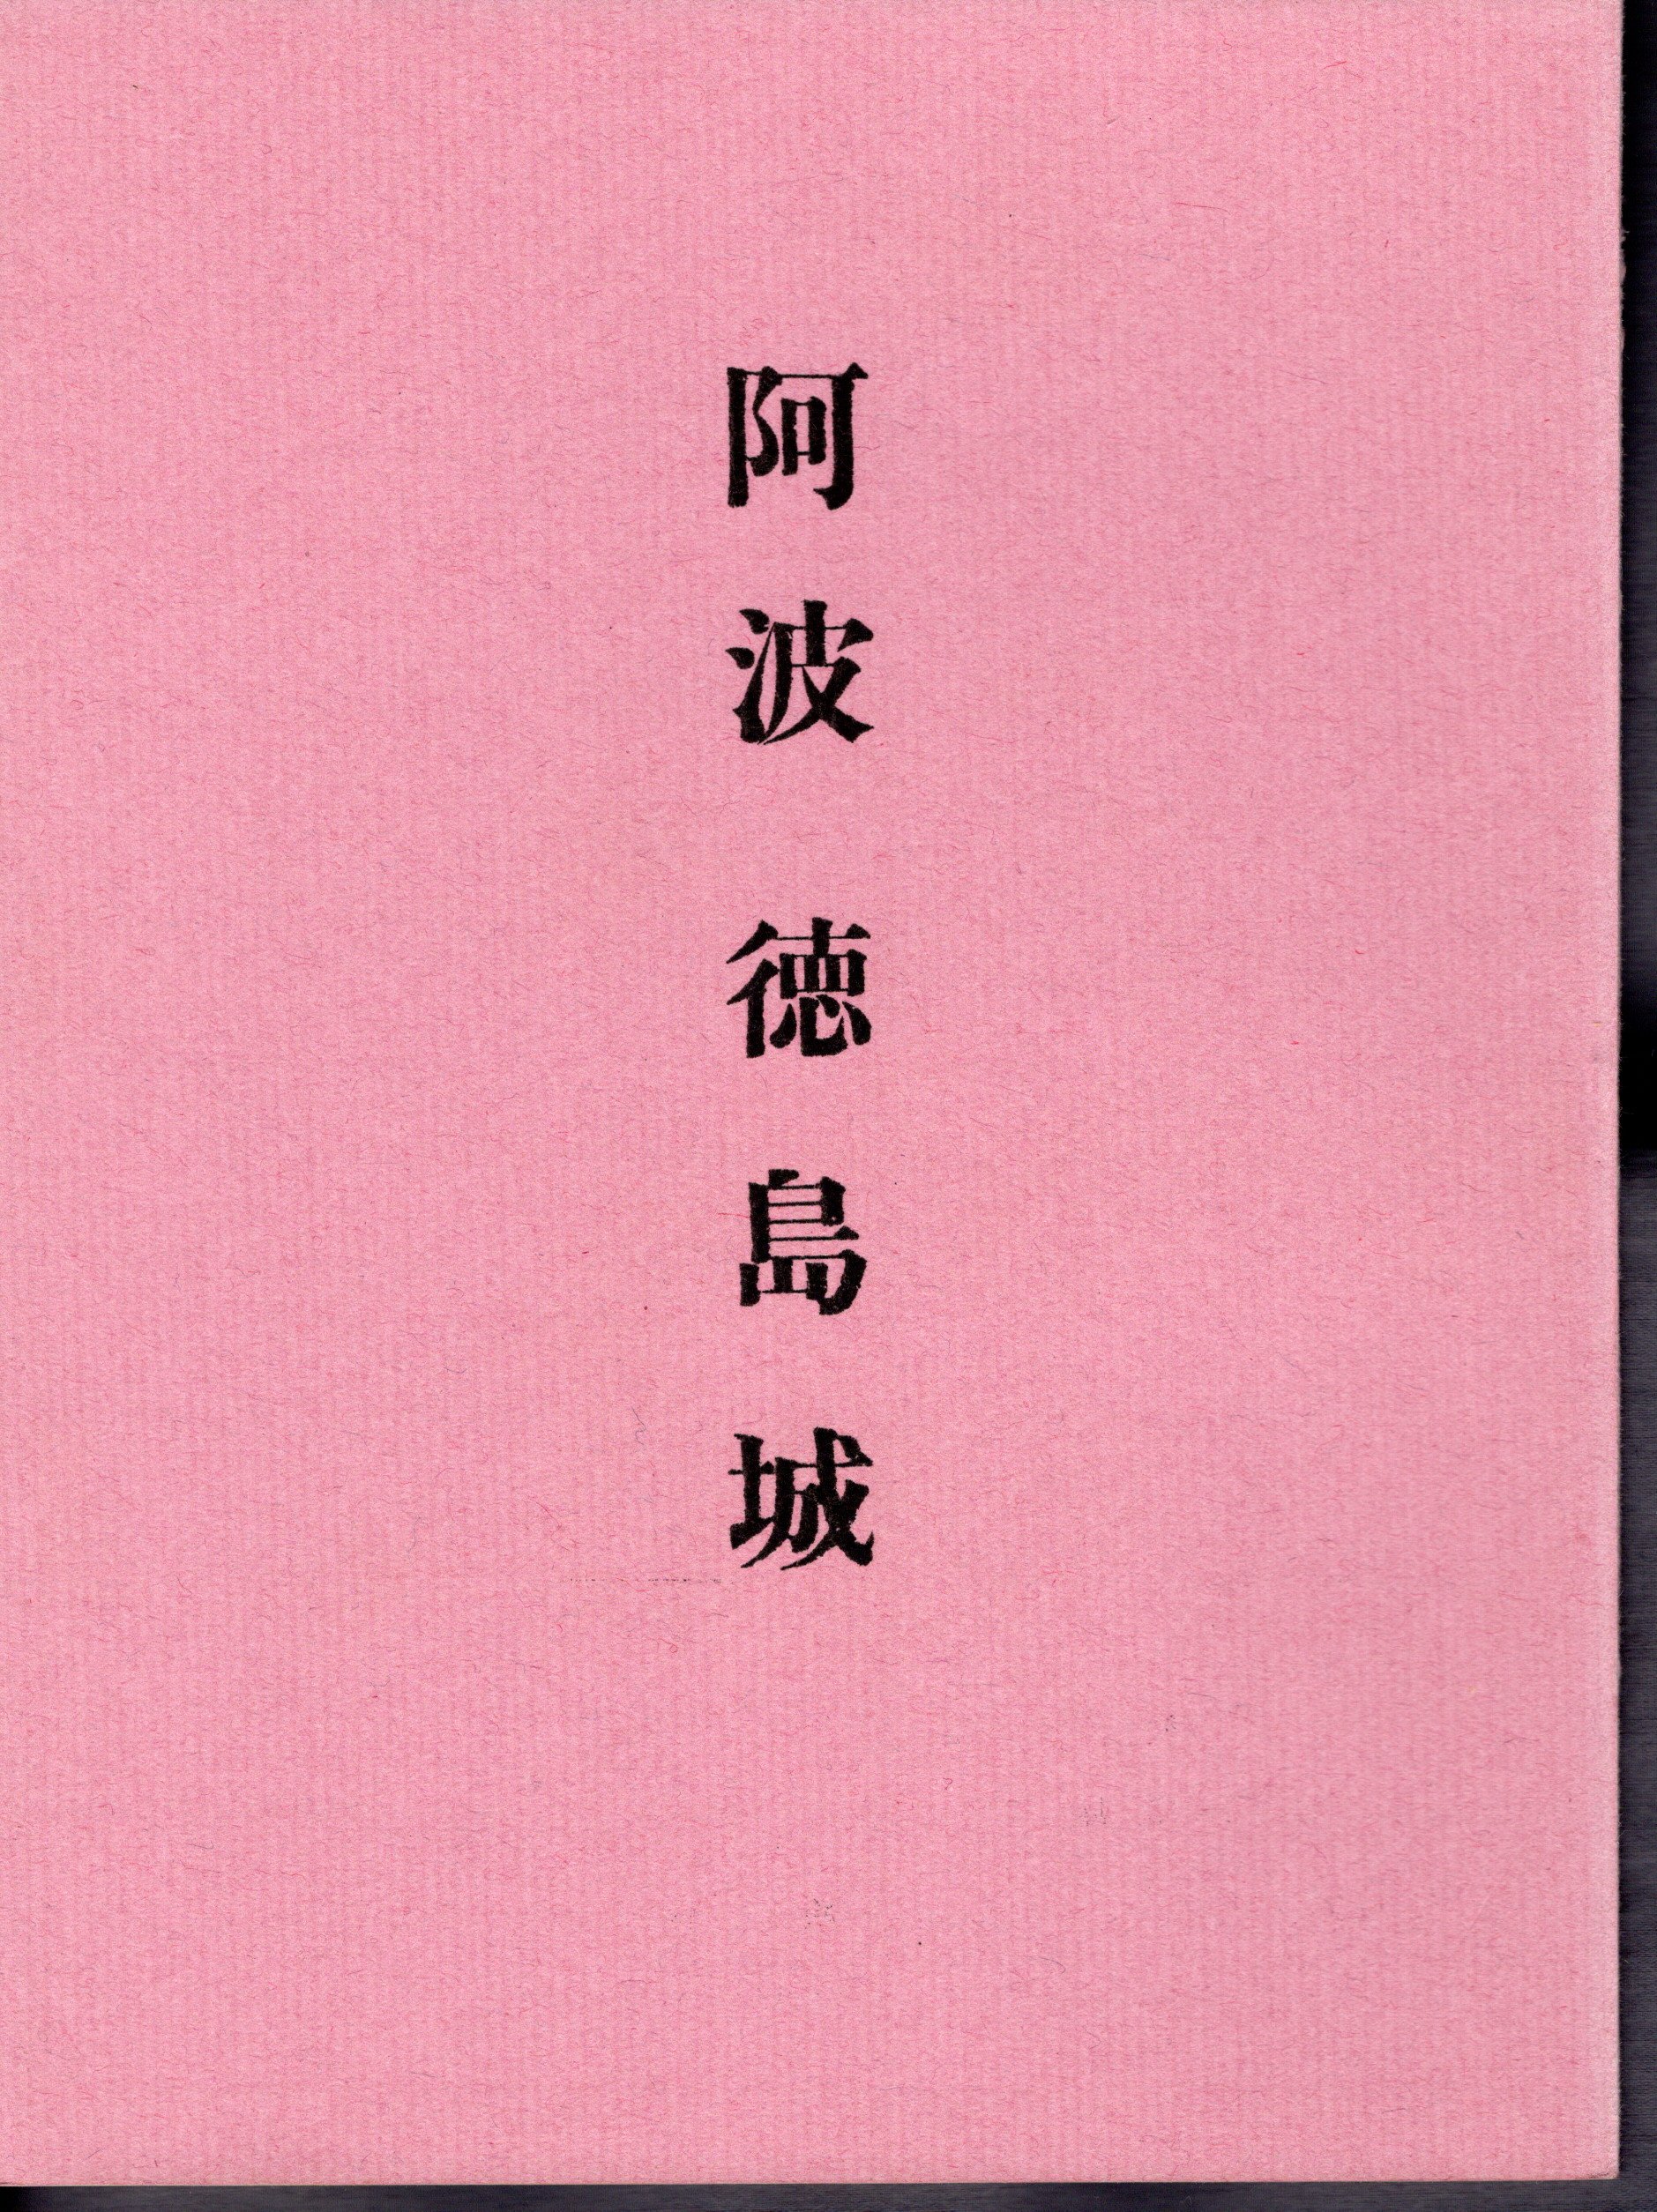 阿波徳島城